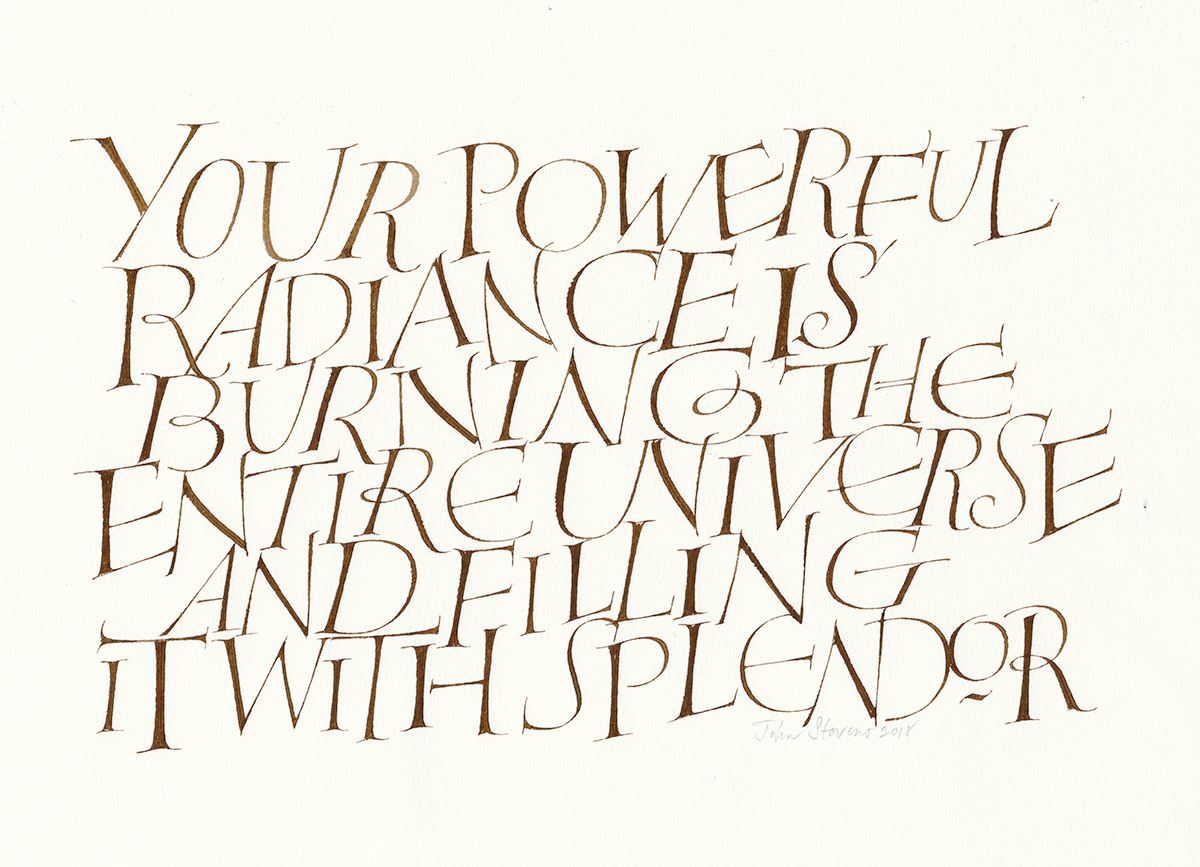 YOUR POWERFUL
RADIANCE IS
BURNING THE
ENTIRE UNIVERSE
AND FILLING
IT WITH SPLENDOR
John Stevens 2018